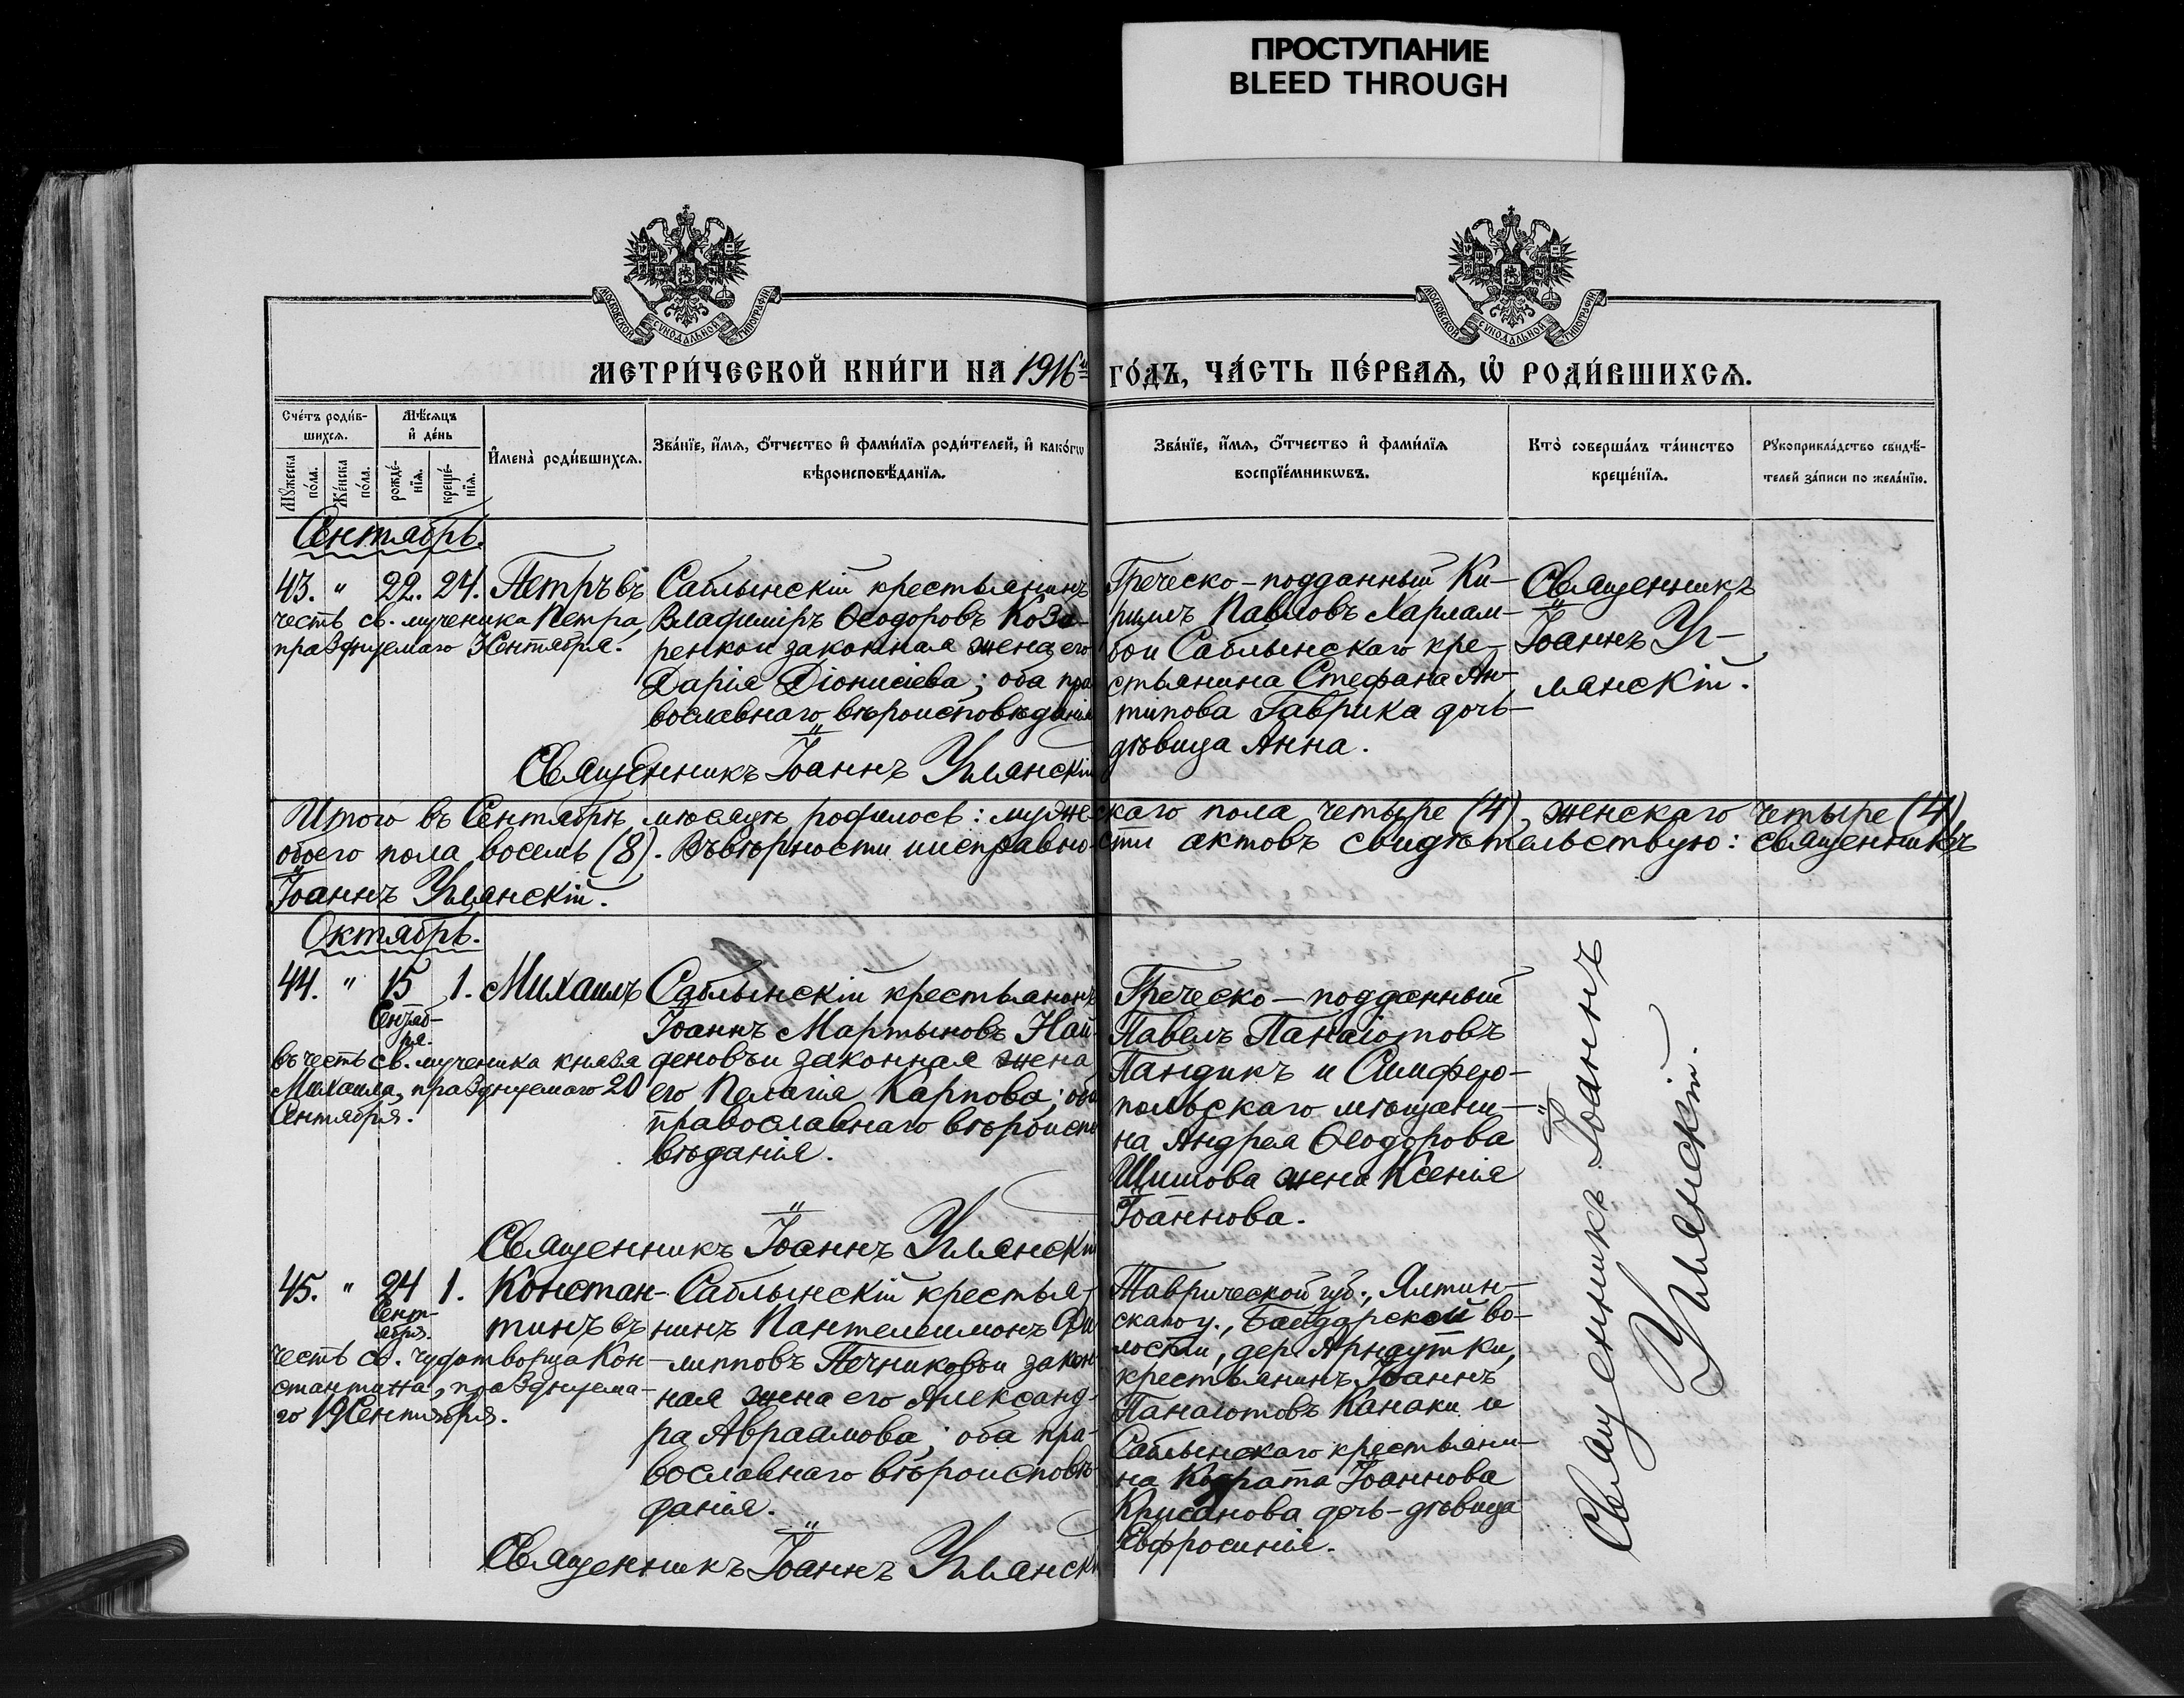 ПРОСТУПАНИЕ
BLEED THROUGH
МОСКОВСКОЙ СѴНОДАЛЬНОЙ ТИПОГРАФІИ
МОСКОВСКОЙ СѴНОДАЛЬНОЙ ТИПОГРАФІИ
МЕТРИ́ЧЕСКОЙ КНИ́ГИ НА 1916й ГО́ДЪ, ЧА́СТЬ ПЕ́РВАѦ, Ѡ҆ РОДИ́ВШИХСѦ.
Сче́тъ роди́в-
шихсѧ.
Мѣ́сѧцъ
и҆ де́нь
Мꙋ́жеска
по́ла.
Же́нска
по́ла.
рожде́-
нїѧ.
креще́-
нїѧ.
И҆мена̀ роди́вшихсѧ.
Зва́нїе, и҆́мѧ, ѻ҆́тчество и҆ фами́лїѧ роди́телей, и҆ како́гѡ
вѣроисповѣ́данїѧ.
Зва́нїе, и҆́мѧ, ѻ҆́тчество и҆ фами́лїѧ
воспрїе́мникѡвъ.
Кто̀ соверша́лъ та́инство
креще́нїѧ.
Рꙋкоприкла́дство свидѣ́-
телей за́писи по жела́нїю.
Сентябрь.
43. " 22. 24. Петръ въ
честь св. мученика Петра,
празднуемаго 3 Сентября.
Саблынскій крестьянинъ
Владиміръ Ѳеодоровъ Коза-
ренко и законная жена его
Дарія Діонисіева; оба пра
вославнаго вѣроисповѣданія
Священникъ Іоаннъ Уманскій
Греческо-подданный Ки-
риллъ Павловъ Харлам-
бои Саблынскаго кре-
стьянина Стефана Ан-
типова Гаврика дочь
дѣвица Анна.
Священникъ
Іоаннъ Ум-
манскій.
Итого въ Сентябрѣ мѣсяцѣ родилось: мужескаго пола четыре (4), женскаго четыре (4),
обоего пола восемь (8). Въ вѣрности и исправности актовъ свидѣтельствую: священникъ
Іоаннъ Уманскій.
Октябрь.
44. " 15 1. Михаилъ
Сентяб-
ря.
въ честь св. мученика князя
Михаила, празднуемаго 20
Сентября.
Саблынскій крестьянинъ
Іоаннъ Мартыновъ Най-
деновъ и законная жена
его Пелагія Карпова; оба
православнаго вѣроиспо
вѣданія.
Священникъ Іоаннъ Уманскій
Греческо-подданный
Павелъ Панаіотовъ
Пандикъ и Симферо-
польскаго мѣщани-
на Андрея Ѳеодорова
Шишова жена Ксенія
Іоаннова.
45. " 24 1. Констан-
Сент-
ября.
тинъ въ
честь св. чудотворца Кон-
стантина, празднуема-
го 19 Сентября.
Саблынскій крестья-
нинъ Пантелеимонъ Фи
липповъ Печниковъ и закон
ная жена его Александ-
ра Авраамова; оба пра-
вославнаго вѣроисповѣ-
данія.
Священникъ Іоаннъ Уманск
Таврической губ., Ялтин-
скаго у., Байдарской во-
лости, дер. Арнаутки,
крестьянинъ Іоаннъ
Панаіотовъ Канаки и
Саблынскаго крестьяни-
на Кодрата Іоаннова
Крисанова дочь-дѣвица
Евфросинія.
Священникъ Іоаннъ
Уманскій.